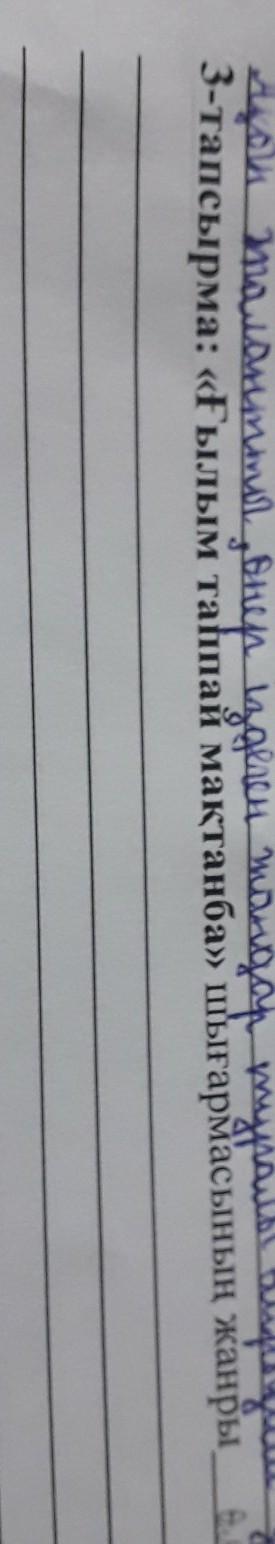 талантты, өнер іздеген жандар туралы
3-тапсырма: «Ғылым таппай мақтанба» шығармасының жанры